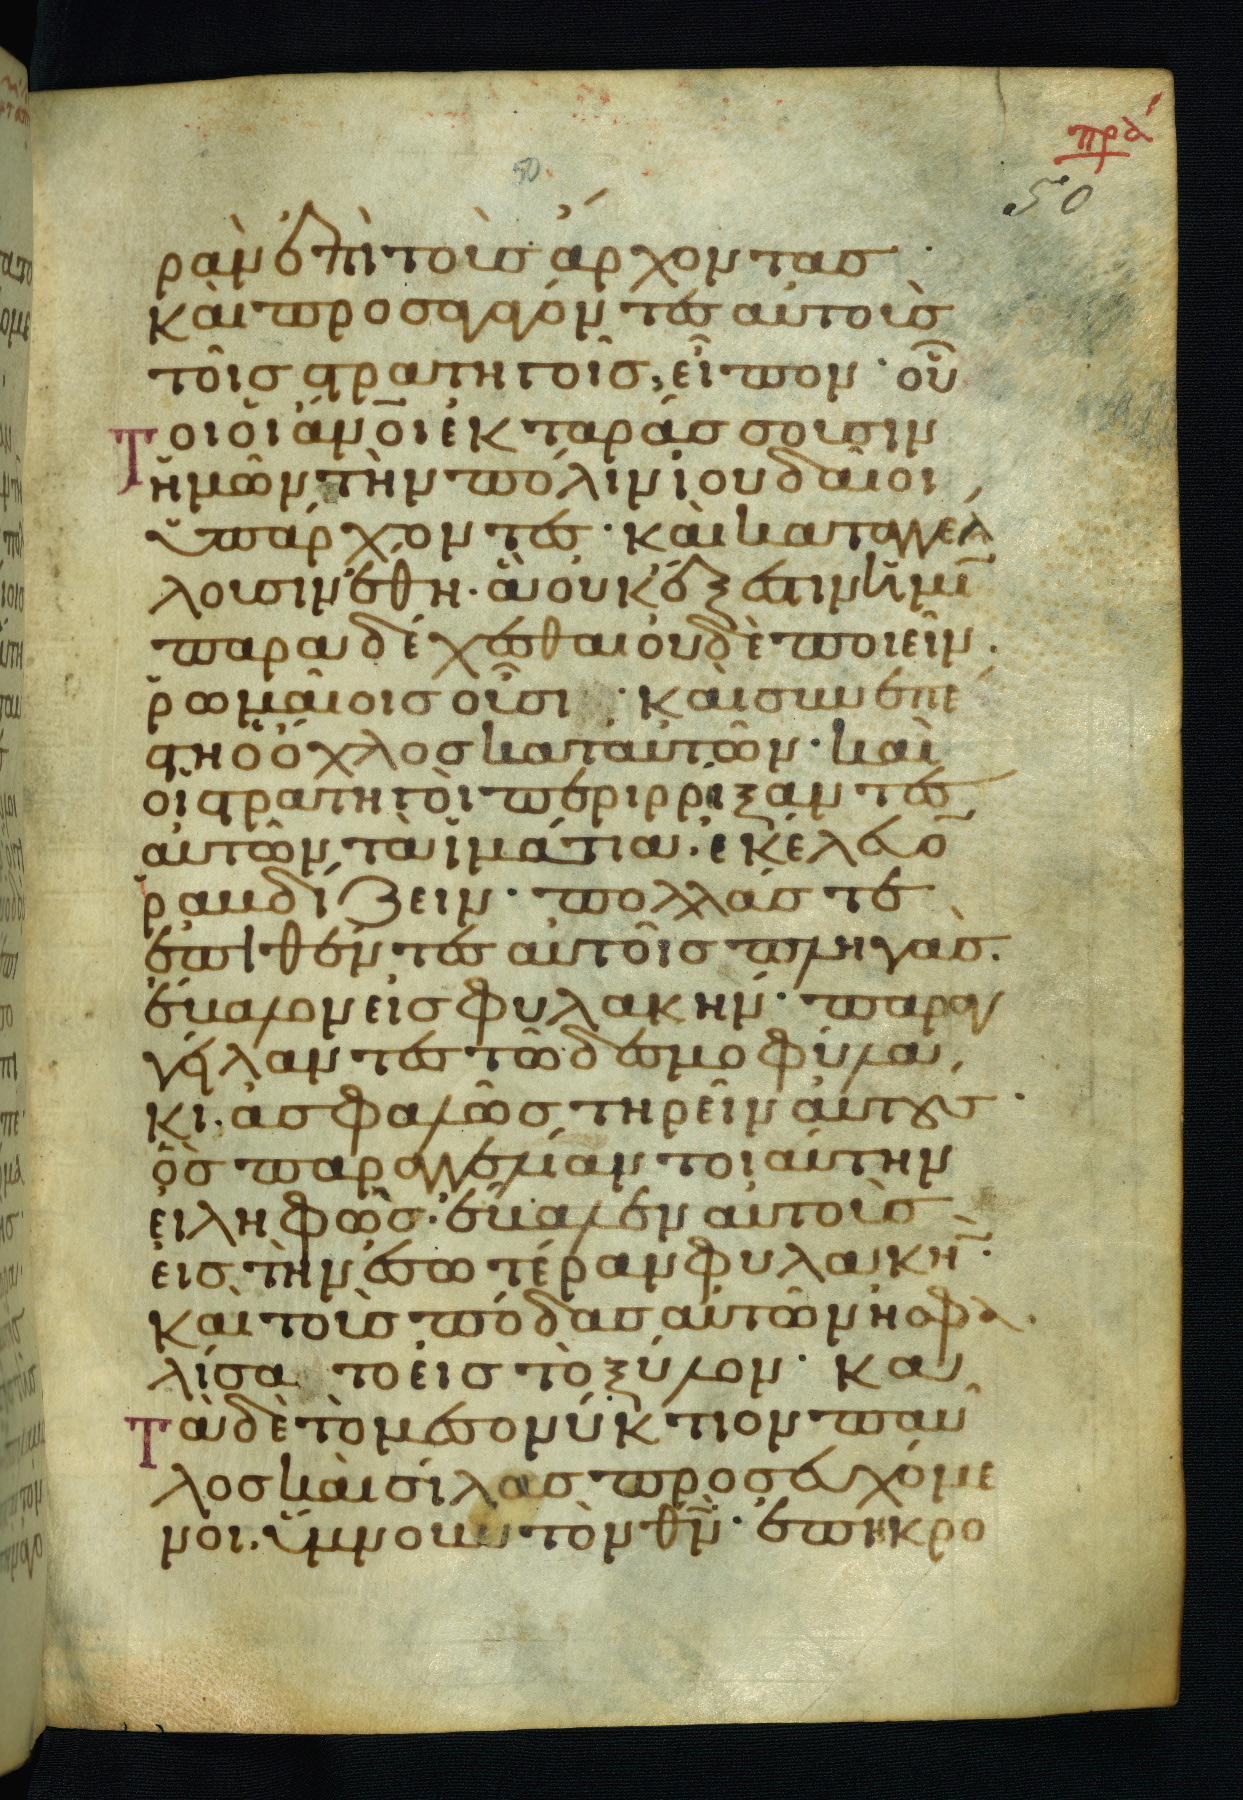 πρά
50
50
ραν ἐπὶ τοὺσ ἄρχοντασ·
καὶ προσαγαγόντεσ αὐτοὺσ
τοῖσ στρατηγοῖσ, εἶπον· οὗ
τοι οἱ ἄν̅ο̅ι̅ ἐκταράσσουσιν
ἡμῶν τὴν πόλιν ἰουδαῖοι
ὑπάρχοντεσ· καὶ καταγγέλ
λουσιν ἔθη· ἃ οὐκ ἔξεστιν ἡμῖ̅
παραδέχεσθαι οὐδὲ ποιεῖν·
ῥωμαίοισ οὖσι· καὶ συνεπέ
στη ὁ ὄχλοσ κατ' αὐτῶν· καὶ
οἱ στρατηγοὶ περιρρίξαντεσ
αὐτῶν τὰ ἱμάτια· ἐκέλευο̅
ῥαυδίζειν· πολλάσ τε
ἐπιθέντεσ αὐτοῖσ πληγὰσ·
ἔβαλον εἰσ φυλακήν· παραγ
γείλαντεσ τῶ δεσμοφύλα
κι· ἀσφαλῶσ τηρεῖν αὐτοὺσ·
ὃσ παραγγελίαν τοιαύτην
εἰληφὼσ· ἔβαλεν αὐτοὺσ
εἰσ τὴν ἐσωτέραν φυλακὴ̅·
καὶ τοὺσ πόδασ αὐτῶν ἠσφα
λίσατο εἰσ τὸ ξύλον· κα
τὰ δὲ τὸ μεσονύκτιον παῦ
λοσ καὶ σίλασ προσευχόμε
νοι· ὕμνουν τὸν θ̅ν̅· ἐπηκρο